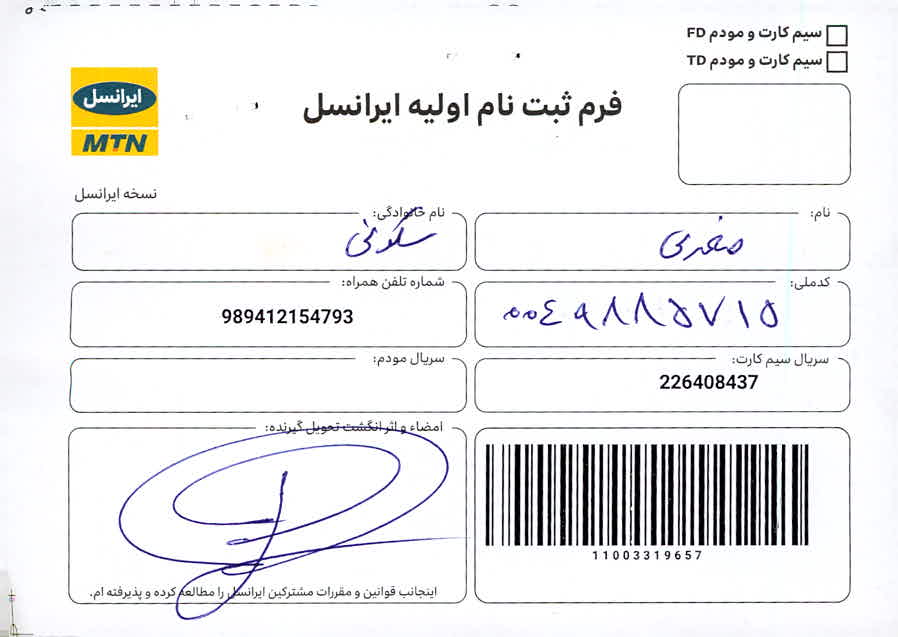 سیم کارت و مودم FD
سیم کارت و مودم TD
ایرانسل
MTN
فرم ثبت نام اولیه ایرانسل
نسخه ایرانسل
نام:
صغری
نام خانوادگی:
سکوتی
کدملی:
۰۰٤۹۸۸۵۷۱۵
شماره تلفن همراه:
989412154793
سریال سیم کارت:
226408437
سریال مودم:
امضاء و اثر انگشت تحویل گیرنده:
11003319657
اینجانب قوانین و مقررات مشترکین ایرانسل را مطالعه کرده و پذیرفته ام.